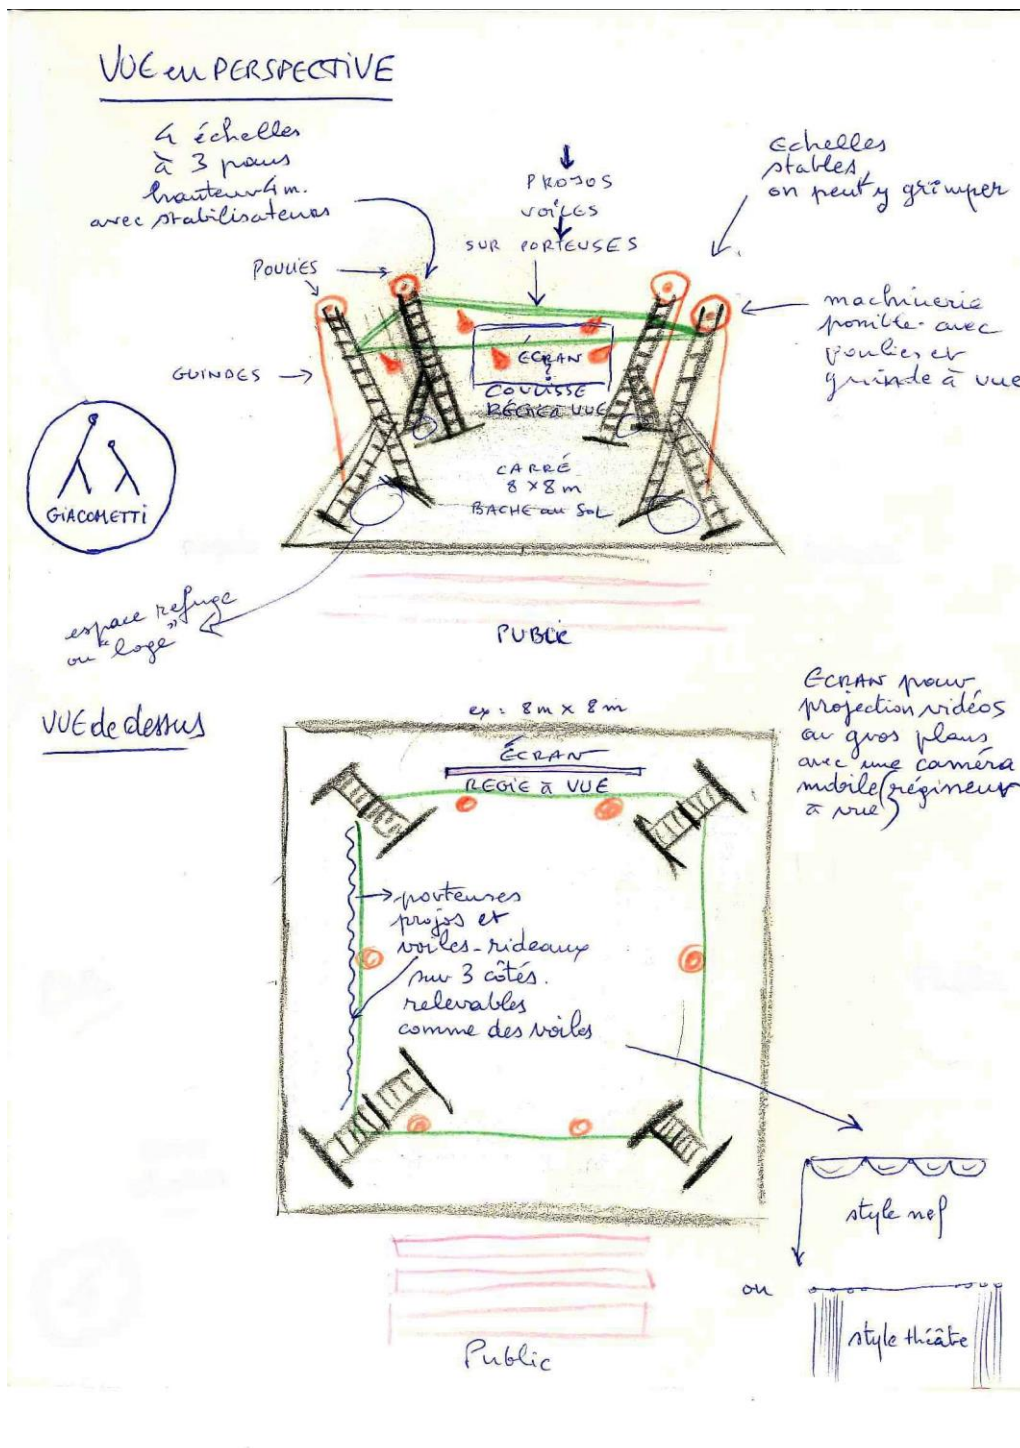 VUE en PERSPECTIVE
4 échelles
à 3 pans
hauteur 4 m.
avec stabilisateurs
PROJOS
VOILES
SUR PORTEUSES
Echelles
stables,
on peut y grimper
POULIES
machinerie
possible avec
poulies et
guinde à vue
GUINDES
ÉCRAN
?
COULISSE
RÉGIE à VUE
GIACOMETTI
CARRÉ
8 x 8 m
BACHE au SOL
espace refuge
ou "loge"
PUBLIC
VUE de dessus
ex : 8 m x 8 m
ÉCRAN
REGIE à VUE
ECRAN pour
projection vidéos
ou gros plans
avec une caméra
mobile (régisseur
à vue)
porteuses
projos et
voiles-rideaux
sur 3 côtés.
relevables
comme des voiles
style nef
ou
style théâtre
Public